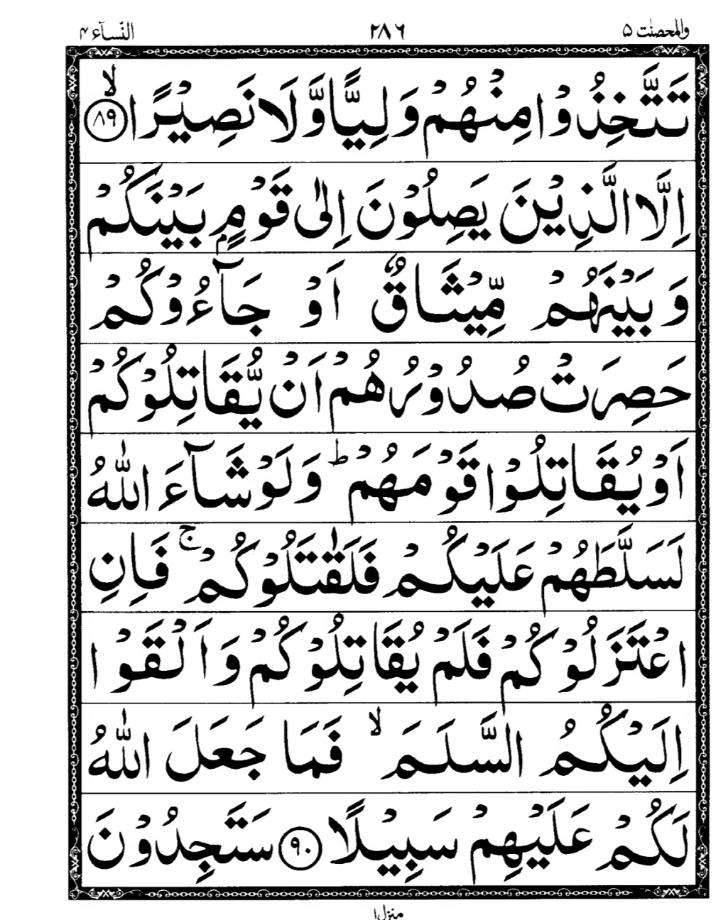 والمحصنٰت ۵ ۲۸۶ النّسآء ۴
تَتَّخِذُوْا مِنْهُمْ وَلِيًّا وَّلَا نَصِيْرًا ۙ﴿۸۹﴾
اِلَّا الَّذِيْنَ يَصِلُوْنَ اِلٰى قَوْمٍۭ بَيْنَكُمْ
وَبَيْنَهُمْ مِّيْثَاقٌ اَوْ جَآءُوْكُمْ
حَصِرَتْ صُدُوْرُهُمْ اَنْ يُّقَاتِلُوْكُمْ
اَوْ يُقَاتِلُوْا قَوْمَهُمْ ؕ وَلَوْ شَآءَ اللّٰهُ
لَسَلَّطَهُمْ عَلَيْكُمْ فَلَقٰتَلُوْكُمْ ۚ فَاِنِ
اعْتَزَلُوْكُمْ فَلَمْ يُقَاتِلُوْكُمْ وَاَلْقَوْا
اِلَيْكُمُ السَّلَمَ ۙ فَمَا جَعَلَ اللّٰهُ
لَكُمْ عَلَيْهِمْ سَبِيْلًا ﴿۹۰﴾ سَتَجِدُوْنَ
منزل ۱